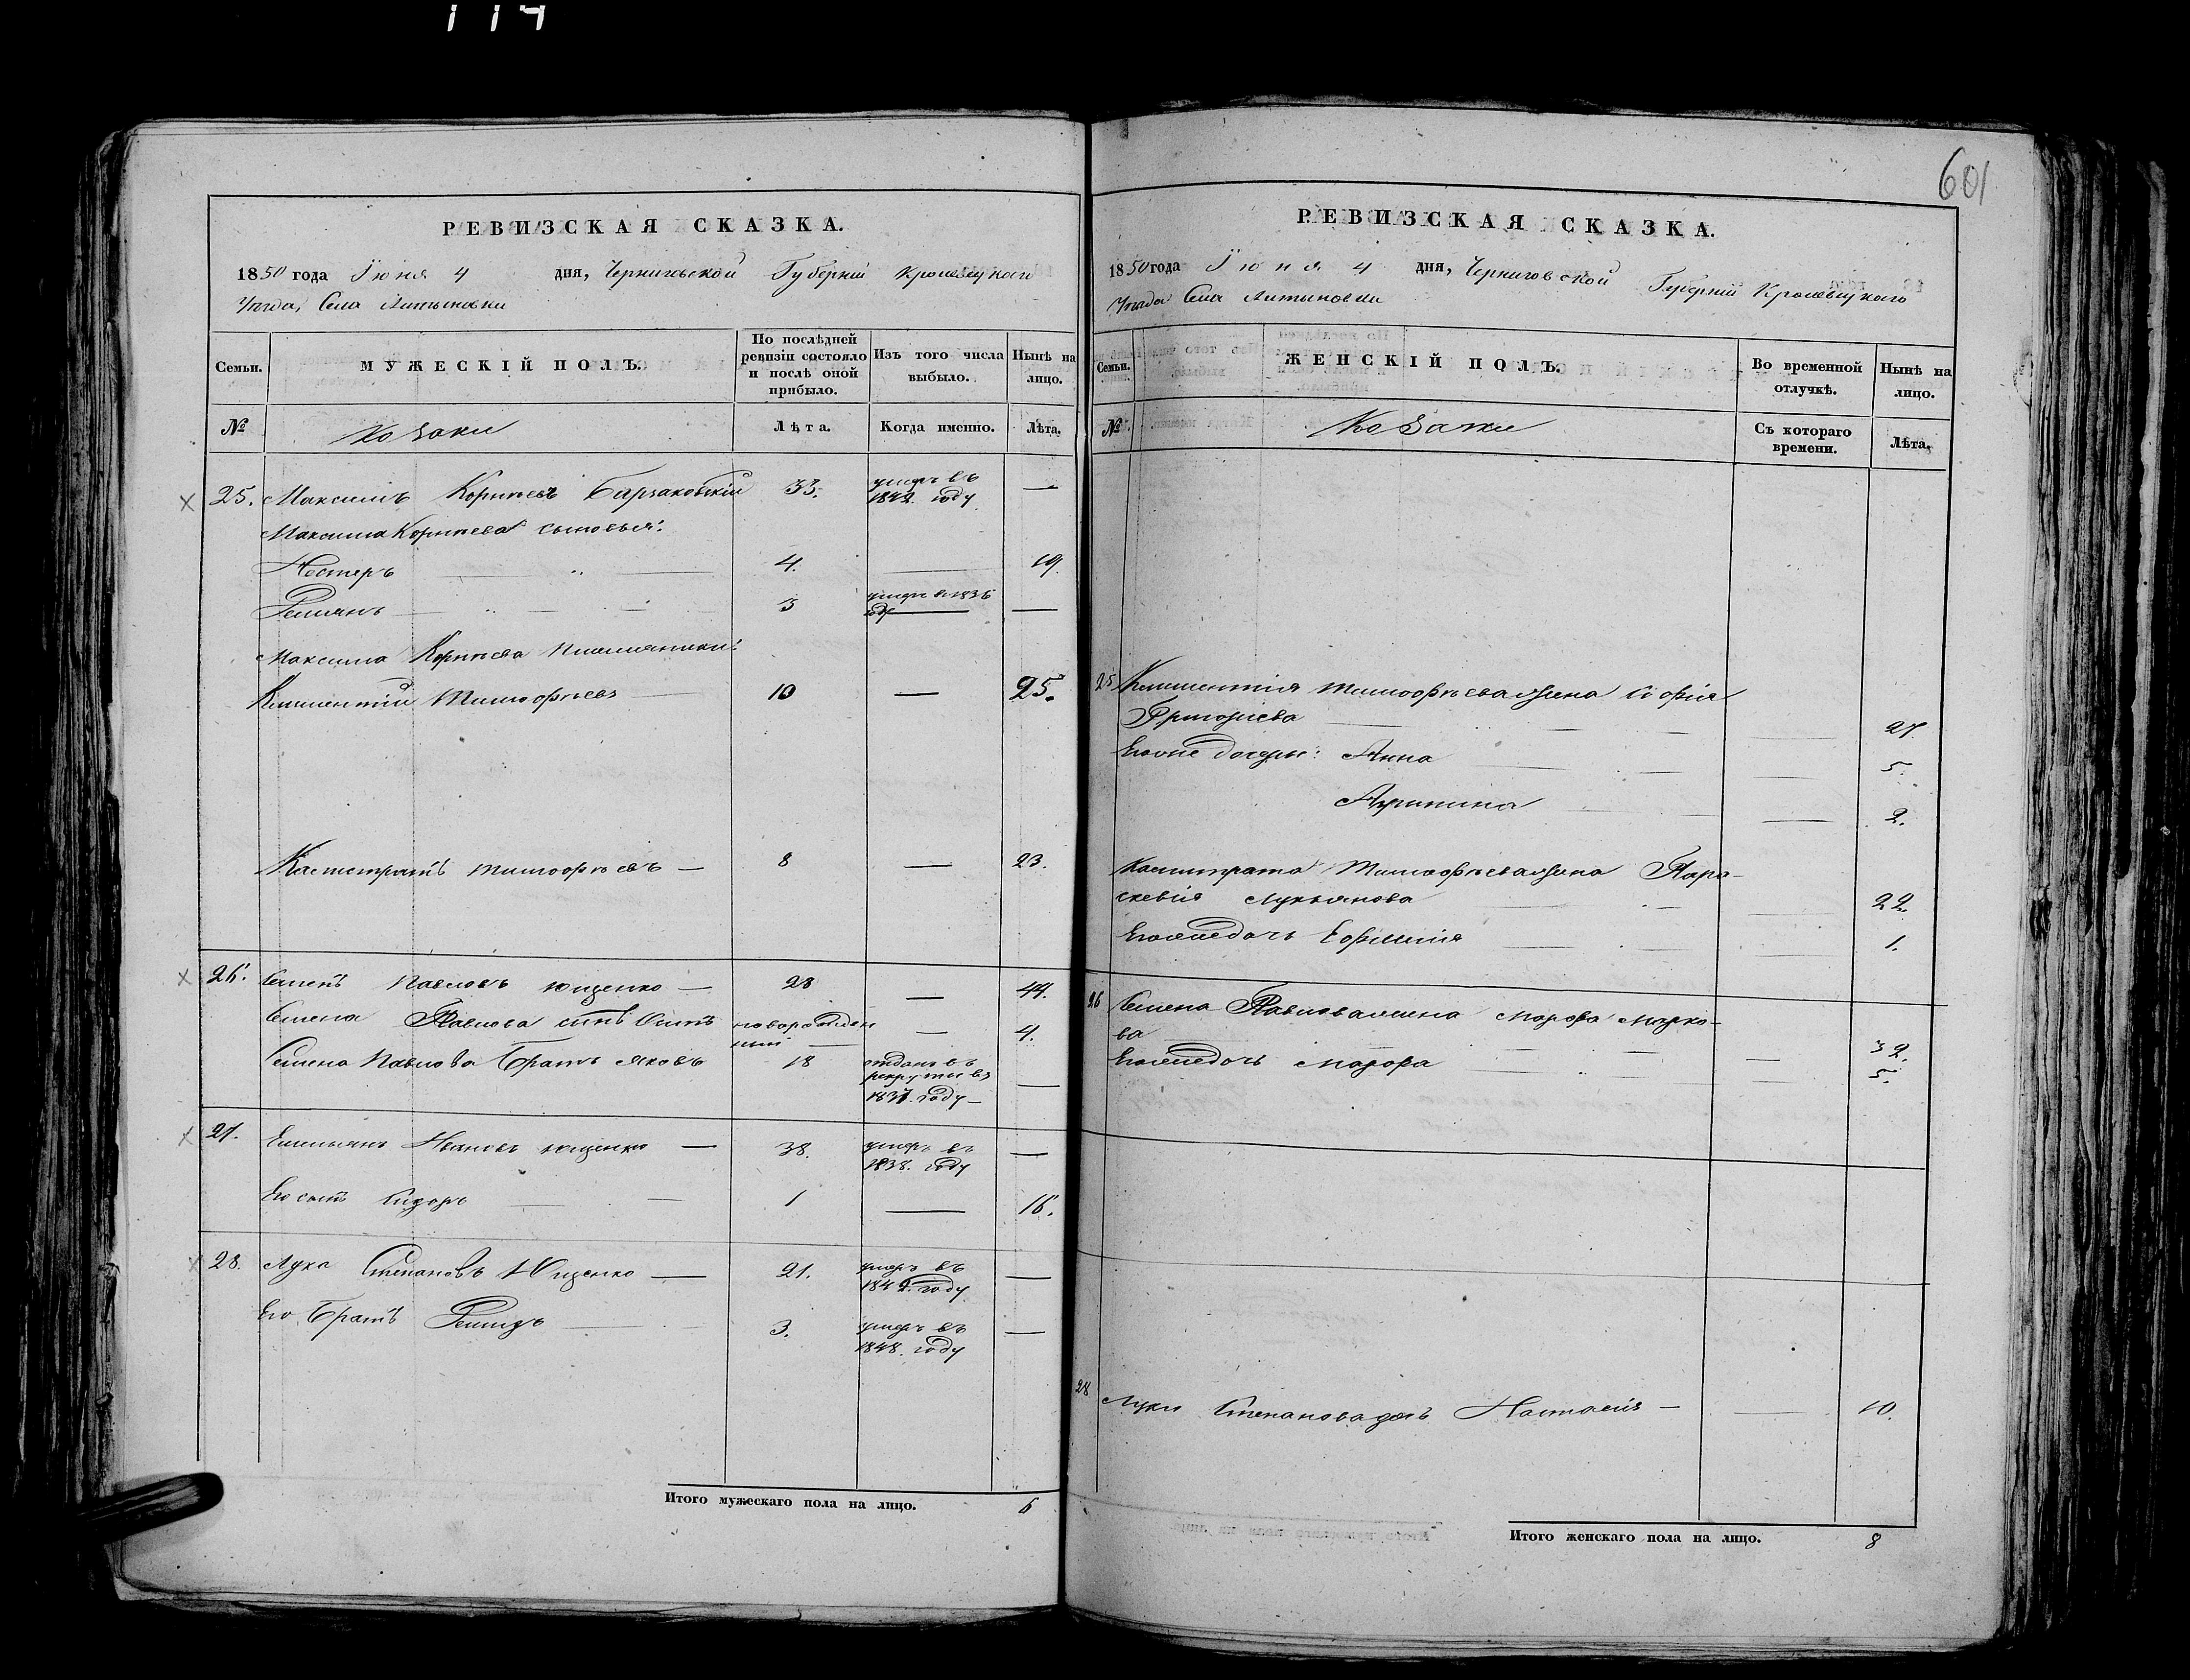 114
601
РЕВИЗСКАЯ СКАЗКА.
1850 года Іюня 4 дня, Черниговской Губерніи Кролевецкаго
Уѣзда, Села Литвиновки
Семьи.
МУЖЕСКІЙ ПОЛЪ.
По послѣдней ревизіи состояло и послѣ оной прибыло.
Изъ того числа выбыло.
Нынѣ на лицо.
№
Козаки
Лѣта.
Когда именно.
Лѣта.
25. Максимъ Корнѣевъ 33. умеръ въ 1842. году —
Максима Корнѣева сыновья:
Нестеръ 4. — 19.
Демьянъ 3 умеръ в 1836 году —
Максима Корнѣева племянники:
Климентій Тимофѣевъ — 10 — 25.
Калистратъ Тимофѣевъ — 8 — 23.
26. Семенъ Павловъ Ющенко — 28 — 44.
Семена Павлова сынъ новорожденный — 4.
Семена Павлова братъ Яковъ 18 отданъ въ рекруты въ 1837. году —
27. Емельянъ Ивановъ Ющенко — 38. умеръ въ 1838. году —
Его сынъ Сидоръ — 1 — 16.
28. Лука Степановъ Ющенко — 21. умеръ въ 1842. году —
Его братъ Демидъ — 3. умеръ въ 1848. году —
Итого мужескаго пола на лицо. 6
РЕВИЗСКАЯ СКАЗКА.
1850 года Іюня 4 дня, Черниговской Губерніи Кролевецкаго
Уѣзда Села Литвиновки
Семьи.
ЖЕНСКІЙ ПОЛЪ.
Во временной отлучкѣ.
Нынѣ на лицо.
№
Козачки
Съ котораго времени.
Лѣта.
25 Климентія Тимофѣева жена Софія
Григорьева — 27.
Его же дочери: Анна — 5.
2.
Калистрата Тимофѣева жена Пара-
скевія Лукьянова — 22.
Его же дочь Ефимія — 1.
26 Семена Павлова жена Марфа Марко-
ва — 32.
Его же дочь Марфа — 5.
28 Луки Степанова дочь Настасія — 10.
Итого женскаго пола на лицо. 8